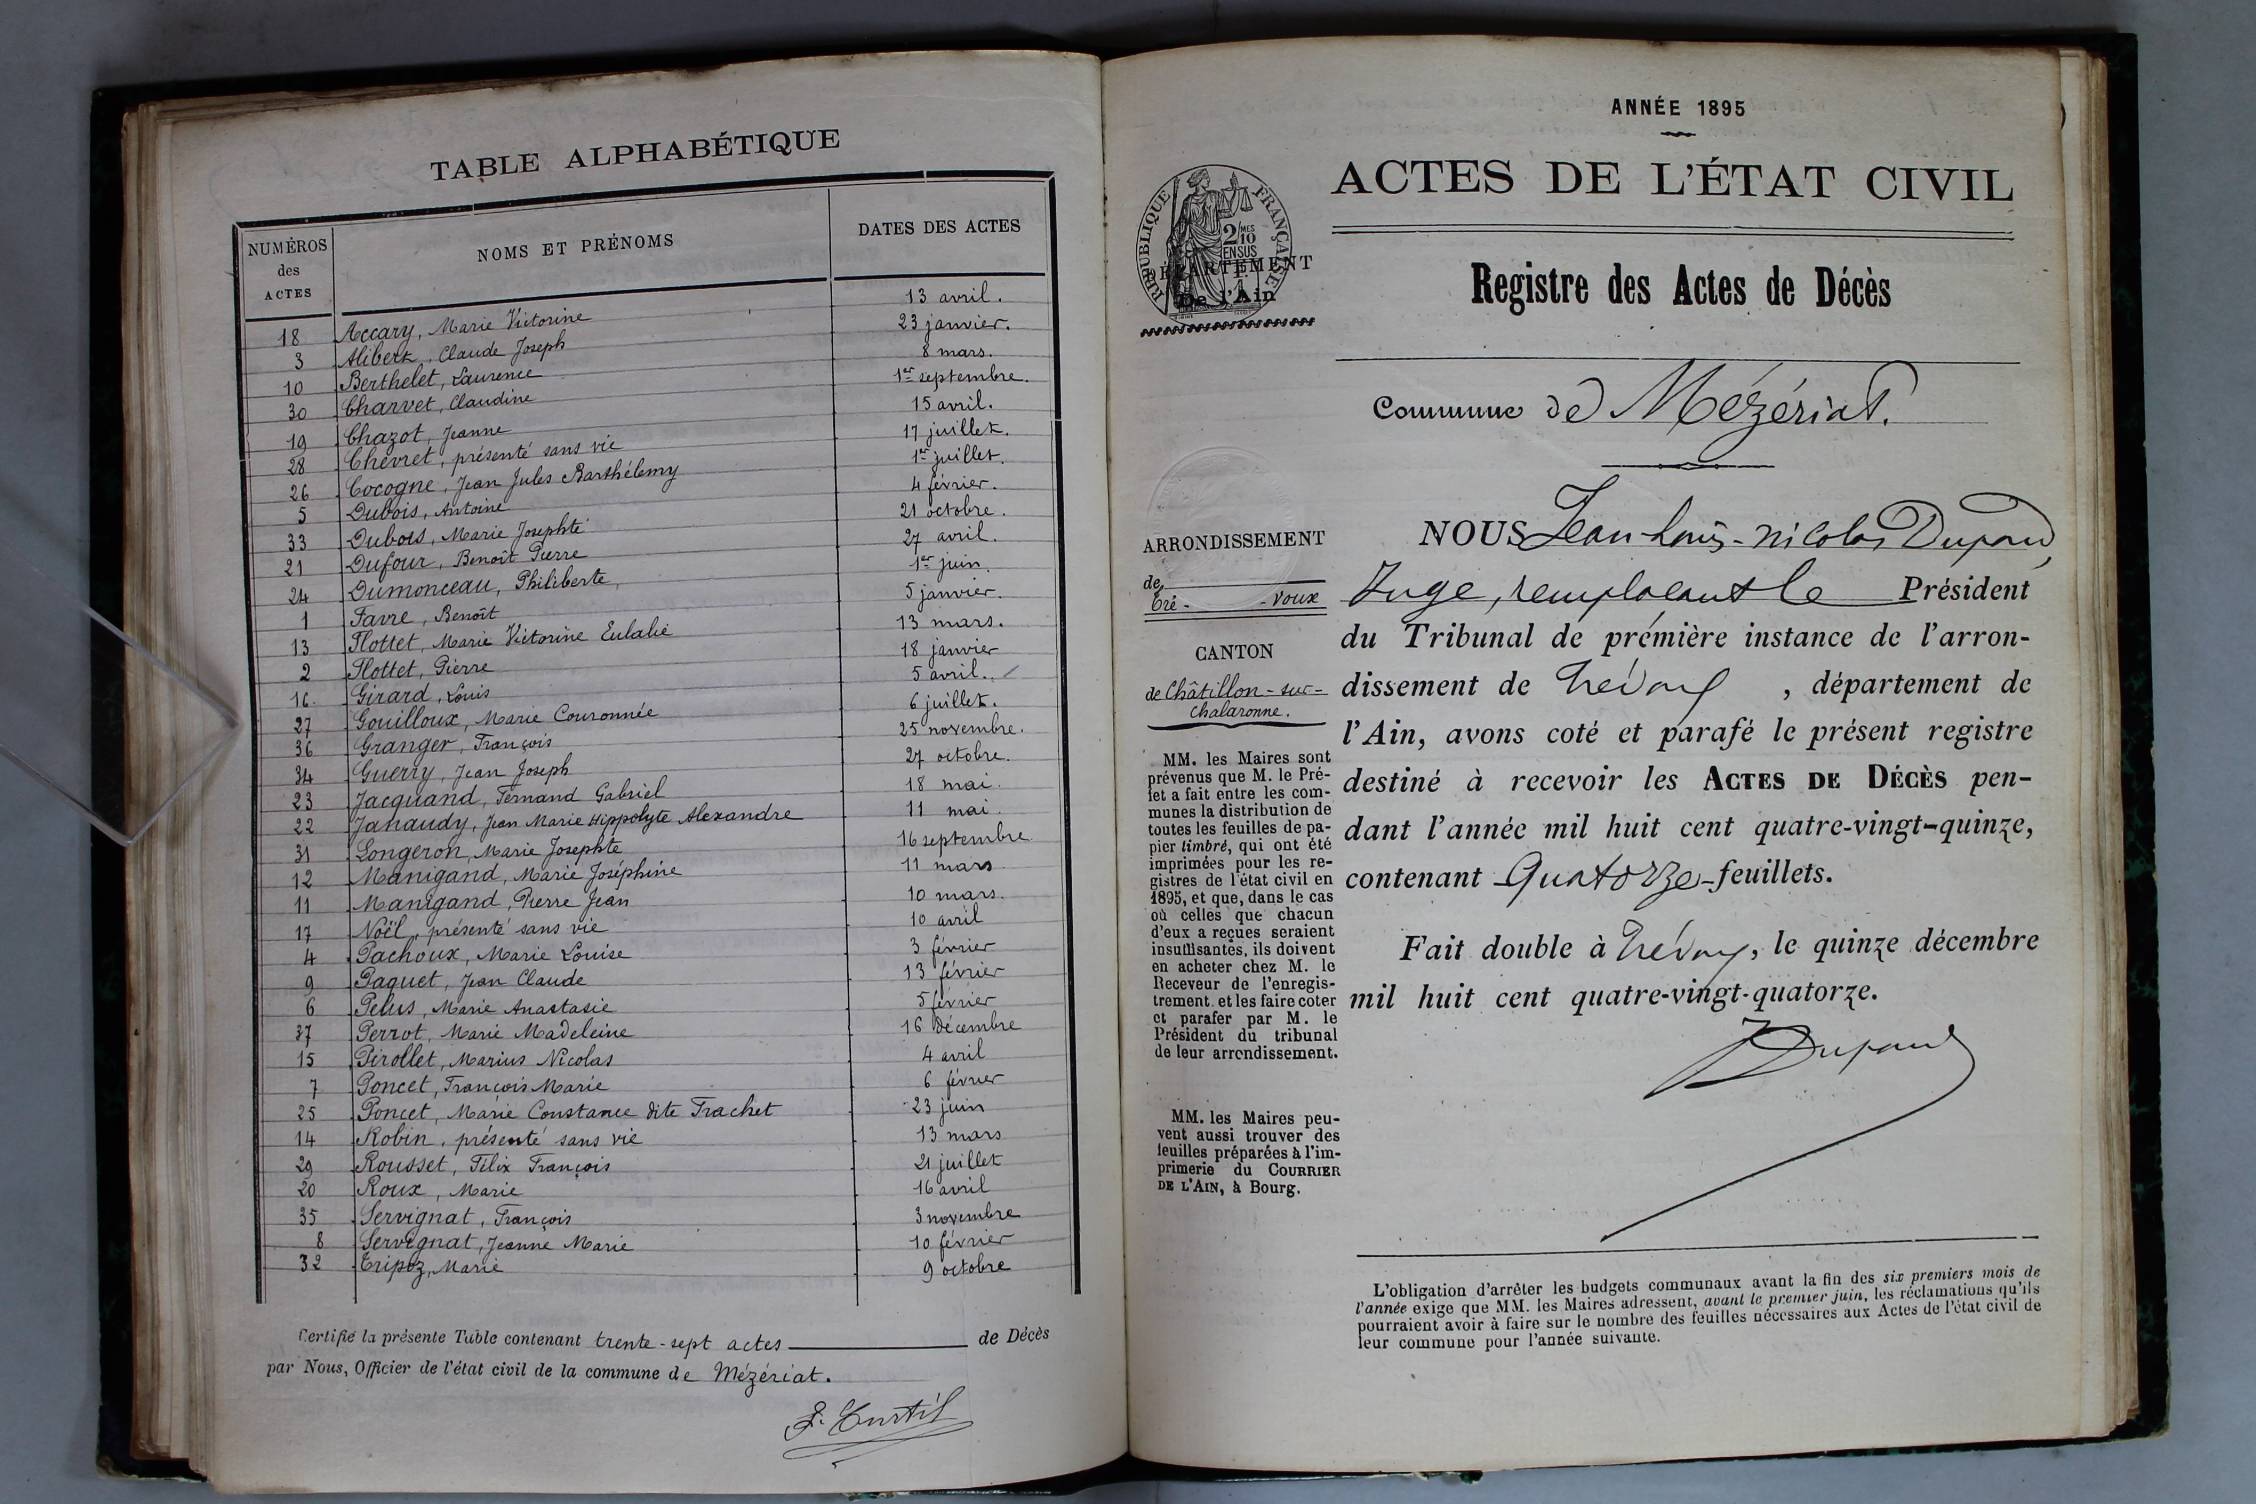 TABLE ALPHABÉTIQUE
NUMÉROS des ACTES NOMS ET PRÉNOMS DATES DES ACTES
18 Accary, Marie Victorine 13 avril.
3 Alibert, Claude Joseph 23 janvier.
10 Berthelet, Laurence 8 mars.
30 Charvet, Claudine 1er septembre.
19 Chazot, Jeanne 15 avril.
28 Chevret, présenté sans vie 17 juillet.
26 Cocogne, Jean Jules Barthélemy 1er juillet.
5 Dubois, Antoine 4 février.
33 Dubois, Marie Josephte 21 octobre.
21 Dufour, Benoît Pierre 27 avril.
24 Dumonceau, Philiberte, 1er juin.
1 Favre, Benoît 5 janvier.
13 Flottet, Marie Victorine Eulalie 13 mars.
2 Flottet, Pierre 18 janvier
16. Girard, Louis 5 avril.
27 Gouilloux, Marie Couronnée 6 juillet.
36 Granger, François 25 novembre.
34 Guerry, Jean Joseph 27 octobre.
23 Jacquand, Fernand Gabriel 18 mai.
22 Janaudy, Jean Marie Hippolyte Alexandre 11 mai.
31 Longeron, Marie Josephte 16 septembre
12 Manigand, Marie Joséphine 11 mars
11 Manigand, Pierre Jean 10 mars.
17 Noël, présenté sans vie 10 avril
4 Pachoux, Marie Louise 3 février
9 Paquet, Jean Claude 13 février
6 Pelus, Marie Anastasie 5 février
37 Perrot, Marie Madeleine 16 décembre
15 Pirollet, Marius Nicolas 4 avril
7 Poncet, François Marie 6 février
25 Poncet, Marie Constance dite Trachet 23 juin
14 Robin, présenté sans vie 13 mars
29 Rousset, Félix François 21 juillet
20 Roux, Marie 16 avril
35 Servignat, François 3 novembre
8 Servignat, Jeanne Marie 10 février
32 Tripoz, Marie 9 octobre
Certifié la présente Table contenant trente-sept actes de Décès
par Nous, Officier de l'état civil de la commune de Mézériat.
ANNÉE 1895
ACTES DE L'ÉTAT CIVIL
RÉPUBLIQUE FRANÇAISE
2 MES 10
EN SUS
DÉPARTEMENT
De l'Ain
Registre des Actes de Décès
Commune de Mézériat.
ARRONDISSEMENT
de
Tré-voux
CANTON
de Châtillon-sur-
Chalaronne.
MM. les Maires sont
prévenus que M. le Pré-
fet a fait entre les com-
munes la distribution de
toutes les feuilles de pa-
pier timbré, qui ont été
imprimées pour les re-
gistres de l'état civil en
1895, et que, dans le cas
où celles que chacun
d'eux a reçues seraient
insuffisantes, ils doivent
en acheter chez M. le
Receveur de l'enregis-
trement et les faire coter
et parafer par M. le
Président du tribunal
de leur arrondissement.
MM. les Maires peu-
vent aussi trouver des
feuilles préparées à l'im-
primerie du COURRIER
DE L'AIN, à Bourg.
NOUS Jean-Louis-Nicolas Dupond,
Juge, remplacant le Président
du Tribunal de première instance de l'arron-
dissement de Trévoux, département de
l'Ain, avons coté et parafé le présent registre
destiné à recevoir les ACTES DE DÉCÈS pen-
dant l'année mil huit cent quatre-vingt-quinze,
contenant Quatorze feuillets.
Fait double à Trévoux, le quinze décembre
mil huit cent quatre-vingt-quatorze.
Dupond
L'obligation d'arrêter les budgets communaux avant la fin des six premiers mois de
l'année exige que MM. les Maires adressent, avant le premier juin, les réclamations qu'ils
pourraient avoir à faire sur le nombre des feuilles nécessaires aux Actes de l'état civil de
leur commune pour l'année suivante.